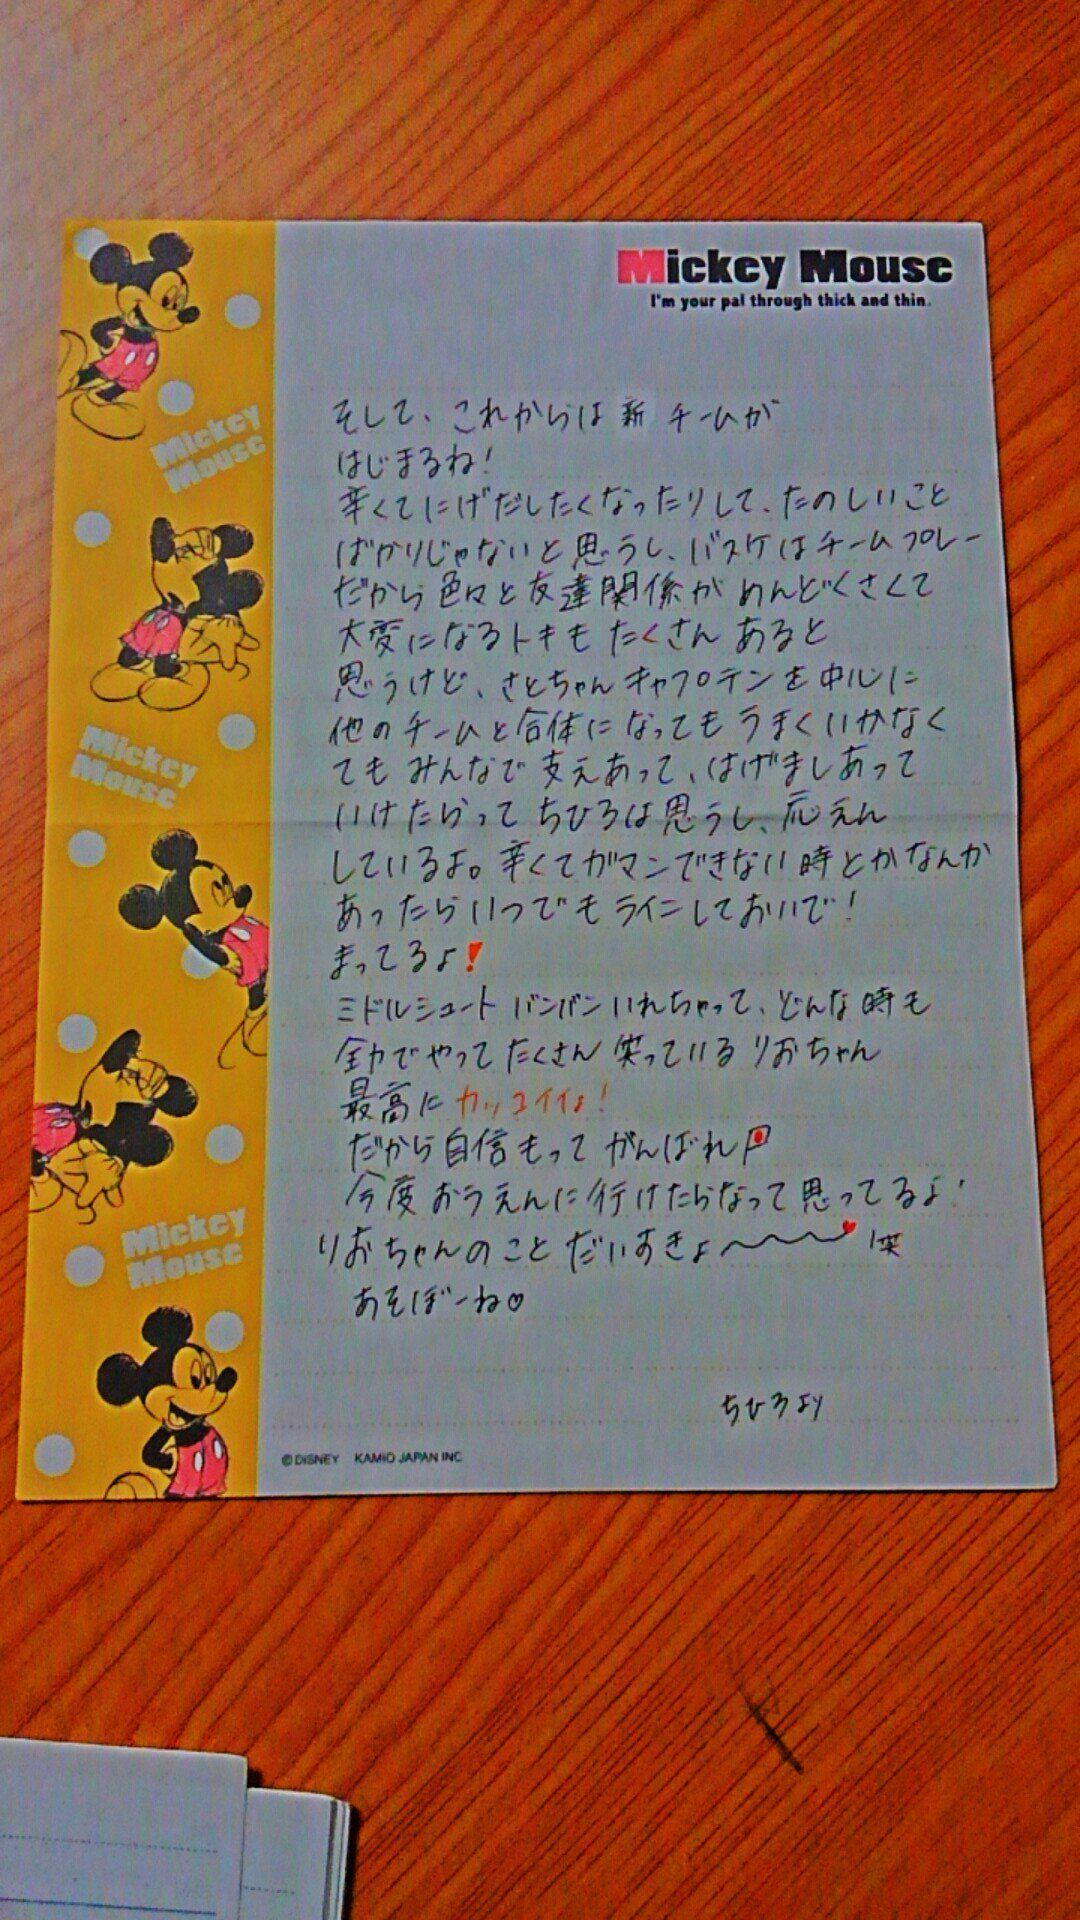 Mickey Mouse
I'm your pal through thick and thin.
そして、これからは新チームが
はじまるね!
辛くてにげだしたくなったりして、たのしいこと
ばかりじゃないと思うし、バスケはチームプレー
だから色々と友達関係がめんどくさくて
大変になるトキもたくさんあると
思うけど、さとちゃんキャプテンを中心に
他のチームと合体になってもうまくいかなく
てもみんなで支えあって、はげましあって
いけたらってちひろは思うし、応えん
しているよ。辛くてガマンできない時とかなんか
あったらいつでもラインしておいで!
まってるよ!
ミドルシュートバンバンいれちゃって、どんな時も
全力でやってたくさん笑っているりおちゃん
最高にカッコイイよ!
だから自信もってがんばれ
今度おうえんに行けたらなって思ってるよ!
りおちゃんのことだいすきよ〜〜〜♥ 笑
あそぼーね♡
ちひろより
© DISNEY KAMIO JAPAN INC
Mickey
Mouse
Mickey
Mouse
Mickey
Mouse